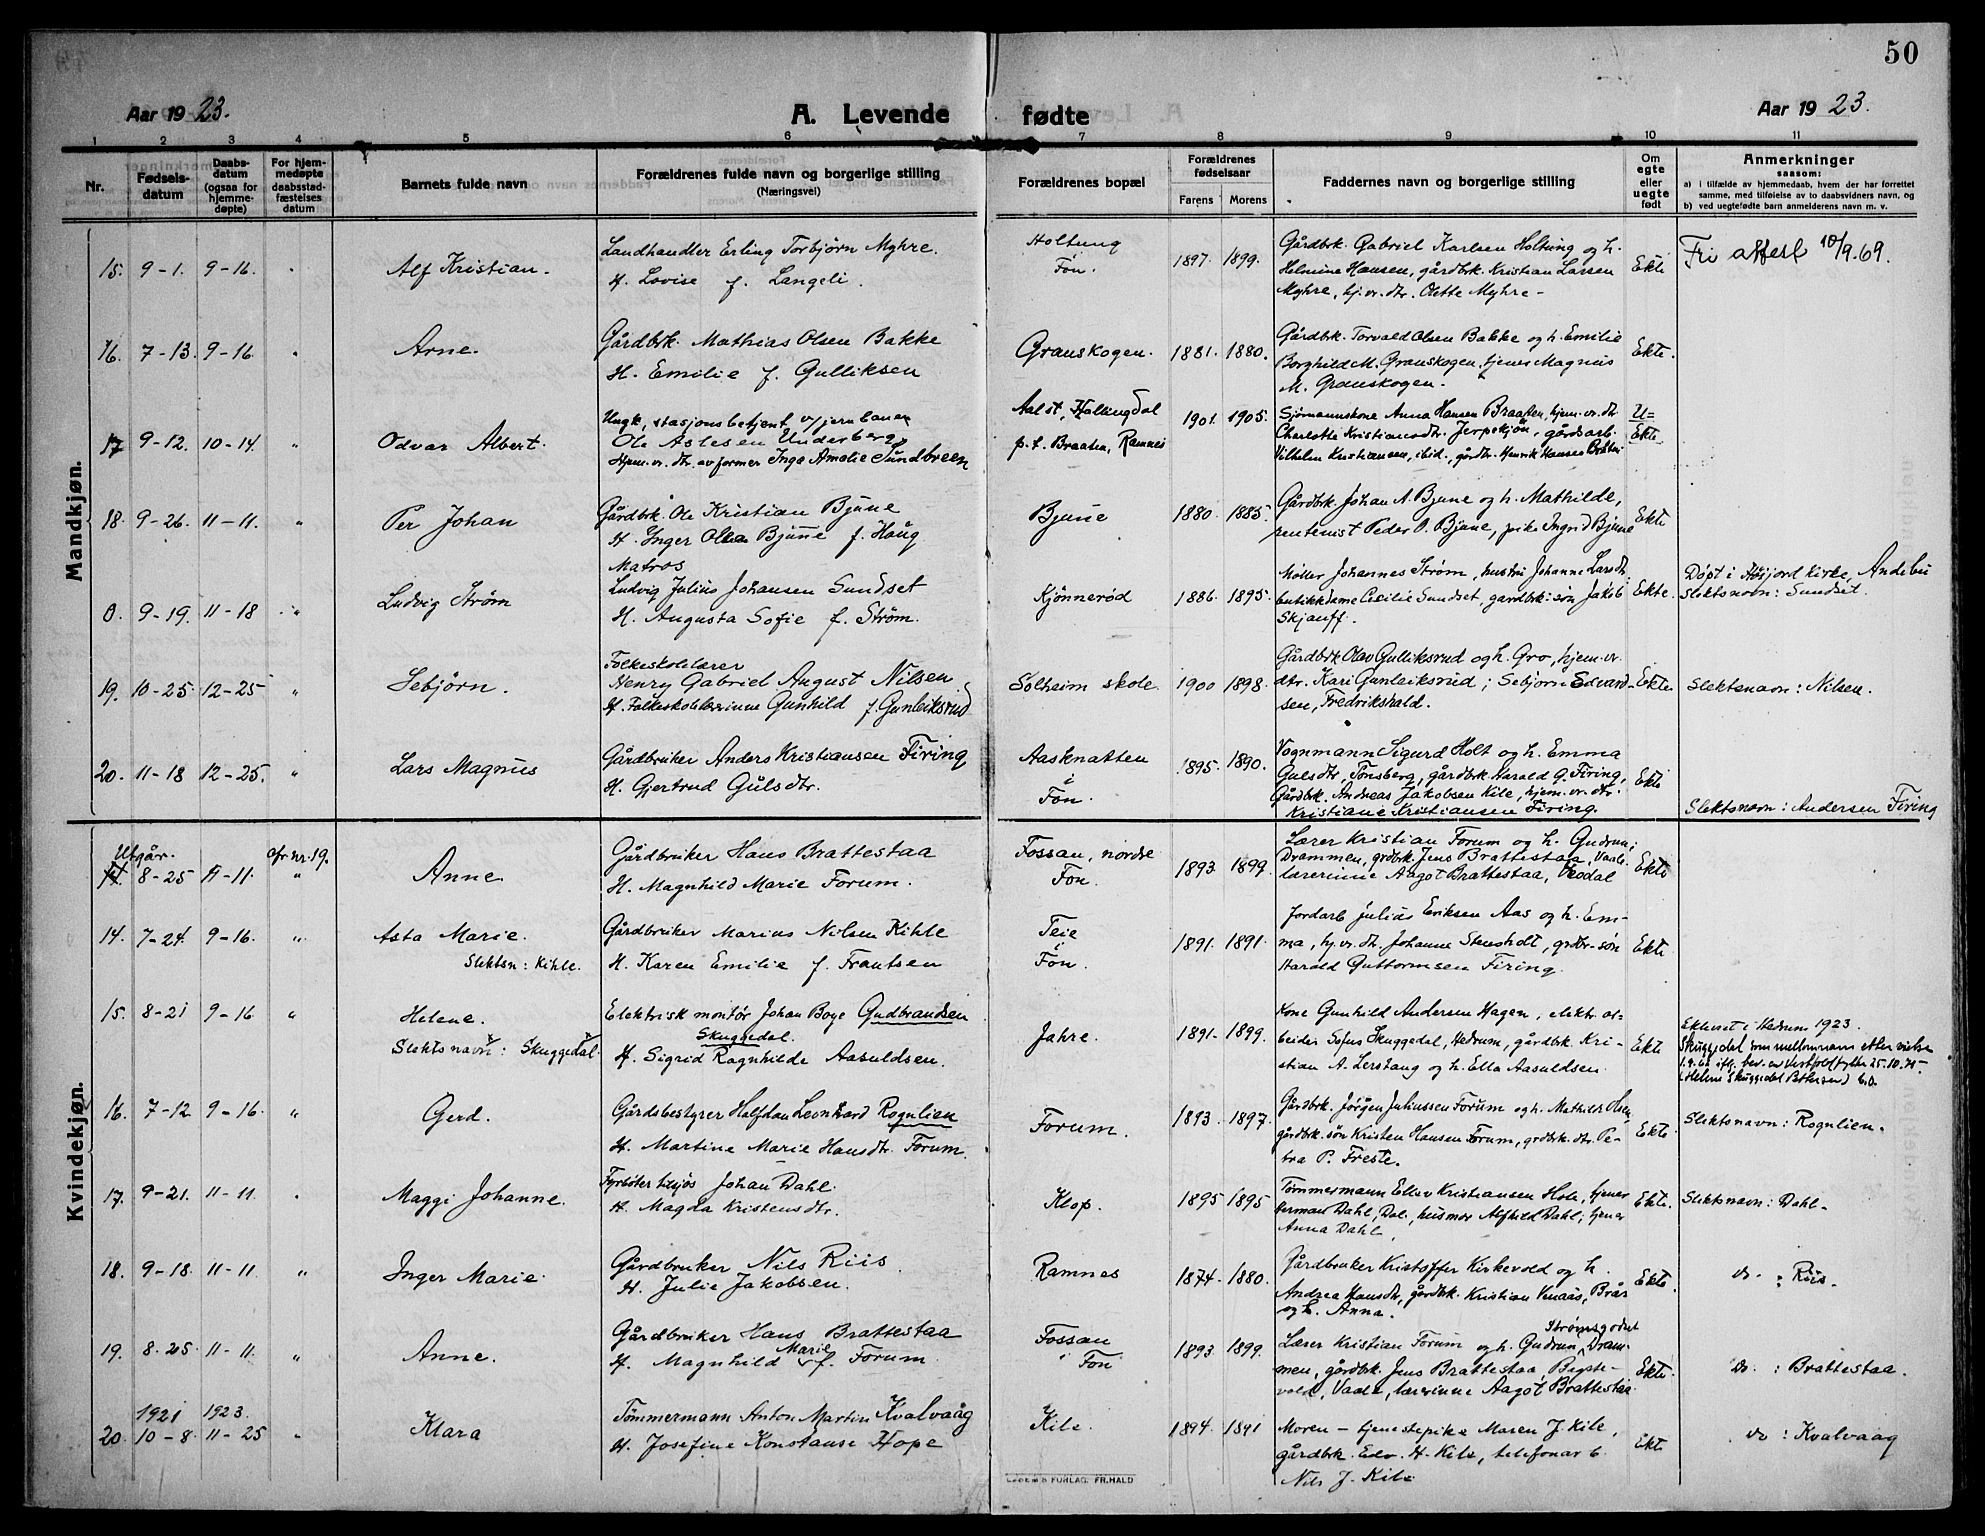 50
Aar 1923.
A. Levende fødte
Aar 1923.
1 2 3 4 5 6 7 8 9 10 11
Nr.
Fødsels-
datum
Daabs-
datum
(ogsaa for
hjemme-
døpte)
For hjem-
medøpte
daabsstad-
fæstelses
datum
Barnets fulde navn
Forældrenes fulde navn og borgerlige stilling
(Næringsvei)
Forældrenes bopæl
Forældrenes
fødselsaar
Farens Morens
Faddernes navn og borgerlige stilling
Om
egte
eller
uegte
født
Anmerkninger
saasom:
a) i tilfælde av hjemmedaab, hvem der har forrettet
samme, med tilføielse av to daabsvidners navn, og
b) ved uegtefødte barn anmelderens navn m. v.
Mandkjøn.
15. 9-1. 9-16. Alf Kristian.
Landhandler Erling Torbjørn Myhre.
H. Lovise f. Langeli.
Holtung
Fon.
1897. 1899.
Gårdbrk. Gabriel Karlsen Holtung og h.
Helmine Hansen, gårdbrk. Kristian Larsen
Myhre, hj.vr.dtr. Olette Myhre-
Ekte
Fri attest 10/9.69.
16. 7-13. 9-16. " Arne.
Gårdbrk. Mathias Olsen Bakke
H. Emilie f. Gulliksen
Granskogen.
1881. 1880.
Gårdbrk. Torvald Olsen Bakke og h. Emilie
Borghild M. Granskogen, tjener Magnus
M. Granskogen.
Ekte.
17 9-12. 10-14. " Odvar Albert.
Ungk, stasjonsbetjent v/jernbanen
Ole Aslesen Underberg,
Hjem.vr.dtr. av former Inga Amalie Sundbreen
Aal st, Hallingdal
p.t. Braaten, Ramnes
1901. 1905.
Sjømannskone Anna Hansen Braaten, hjem.vr.dtr.
Charlotte Kristiansdtr. Jerpekjøn, gårdsarb.
Vilhelm Kristiansen, ibid., gårdbr. Henrik Hansen
U=
Ekte
18. 9-26. 11-11. " Per Johan
Gårdbrk. Ole Kristian Bjune
H. Inger Olea Bjune f. Haug
Bjune
1880. 1885.
Gårdbrk Johan A. Bjune og h. Mathilde,
rentenist Peder O. Bjune, pike Ingrid Bjune
Ekte
0. 9-19. 11-18 " Ludvig Strøm
Matros
Ludvig Julius Johansen Sundset
H. Augusta Sofie f. Strøm.
Kjønnerød
1886. 1895.
Møller Johannes Strøm, hustru Johanne Larsdtr,
butikkdame Cecilie Sundset, gardbrk: søn Jakob
Skjauff.
Ekte.
Døpt i Høijord Kirke, Andebu
Slektsnavn: Sundset.
19. 10-25. 12-25 " Sebjørn.
Folkeskolelærer
Henry Gabriel August Nilsen
H. Folkeskolelærerinne Gunhild f. Gunleiksrud
Solheim skole.
1900 1898.
Gårdbrk Olav Gulliksrud og h. Gro, hjem.vr.
dtr. Kari Gunleiksrud; Sebjørn Edvard-
sen, Fredrikshald.
Ekte
Slektsnavn: Nilsen.
20. 11-18 12-25. " Lars Magnus
Gårdbruker Anders Kristiansen Firing
H. Gjertrud Gulsdtr.
Aasknatten
i
Fon.
1895. 1890.
Vognmann Sigurd Holt og h. Emma
Gulsdtr, Tønsberg, gårdbrk Harald G. Firing,
Gårdbrk. Andreas Jakobsen Kile, hjem.vr.dtr.
Kristiane Kristiansen Firing.
Ekte
Slektsnavn: Andersen Firing
Kvindekjøn.
Utgår. cfr nr. 19.
8-25 11-11. " Anne.
Gårdbruker Hans Brattestaa
H. Magnhild Marie Forum.
Fossan, nordre
Fon.
1893 1899
Lærer Kristian Forum og h. Gudrun,
Drammen, grdbrk. Jens Brattestaa, Vaale
lærerinne Aagot Brattestaa,
Ekte
14. 7-24. 9-16. " Asta Marie.
Slektsn: Kihle.
Gårdbruker Marius Nilsen Kihle
H. Karen Emilie f. Frantsen
Teie
Fon.
1891. 1891.
Jordarb Julius Eriksen Aas og h. Em-
ma, hj.vr.dtr. Johanne Stensholt, grdbr-søn
Harald Guttormsen Firing.
Ekte
15. 8-21 9-16 " Helene.
Slektsnavn: Skuggedal
Elektrisk montør Johan Boye Gudbrandsen
Skuggedal.
H. Sigrid Ragnhilde Aasuldsen.
Jahre.
1891- 1899.
Kone Gunhild Andersen Hagen, elektr. ar-
beider Sofus Skuggedal, Hedrum, gårdbrk. Kri-
stian A. Lerstang og h. Ella Aasuldsen
Ekte
Ekteviet i Hedrum 1923.
Skuggedal som mellomnavn etter vielse
1.9.62 iflg. bev. av Vestfold fylke 25.10.75-
(Helene Skuggedal Pettersen)
16. 7-12. 9-16. " Gerd.
Gårdsbestyrer Halfdan Leonhard Rognlien
H. Martine Marie Hansdtr. Forum.
Forum.
1893. 1897.
Gårdbrk. Jørgen Juliussen Forum og h. Mathilde Olsen,
gårdbrk. søn Kristen Hansen Forum, grdbrk. dtr. Pe-
tra P. Freste.
Ekte.
Slektsnavn: Rognlien.
17. 9-21. 11-11. Maggi Johanne.
Fyrbøter Johan Dahl.
H. Magda Kristensdtr.
Klop.
1895 1895
Tømmermann Ellev Kristiansen Hole, tjener
Herman Dahl, Dal, husmor Alfhild Dahl, tjener
Anna Dahl.
Ekte.
Slektsnavn: Dahl-
18. 9-18. 11-11. " Inger Marie.
Gårdbruker Nils Riis.
H. Julie Jakobsen.
Ramnes
1874- 1880.
Gårdbruker Kristoffer Kirkevold og h.
Andrea Hansdtr, gårdbrk. Kristian Venaas, Brår
og h. Anna.
Ekte.
do. : Riis.
19. 8-25. 11-11. " Anne.
Gårdbruker Hans Brattestaa
H. Magnhild Marie f. Forum.
Fossan
i Fon
1893. 1899.
Strømsgodset
Lærer Kristian Forum og h. Gudrun, Dram-
men, gårdbrk. Jens Brattestaa, Bagste-
vold, Vaale, lærerinne Aagot Brattestaa.
Ekte.
do. : Brattestaa.
20. 1921 10-8. 1923. 11-25 Klara
Tømmermann Anton Martin Kvalvaag
H. Josefine Konstanse Hope
Kile.
1894. 1891
Moren - tjenestepike Maren J. Kile,
gårdbrk. Edv. H. Kile, telefonarb.
Nils J. Kile
Ekte
do : Kvalvaag
FORLAG. FR.HALD